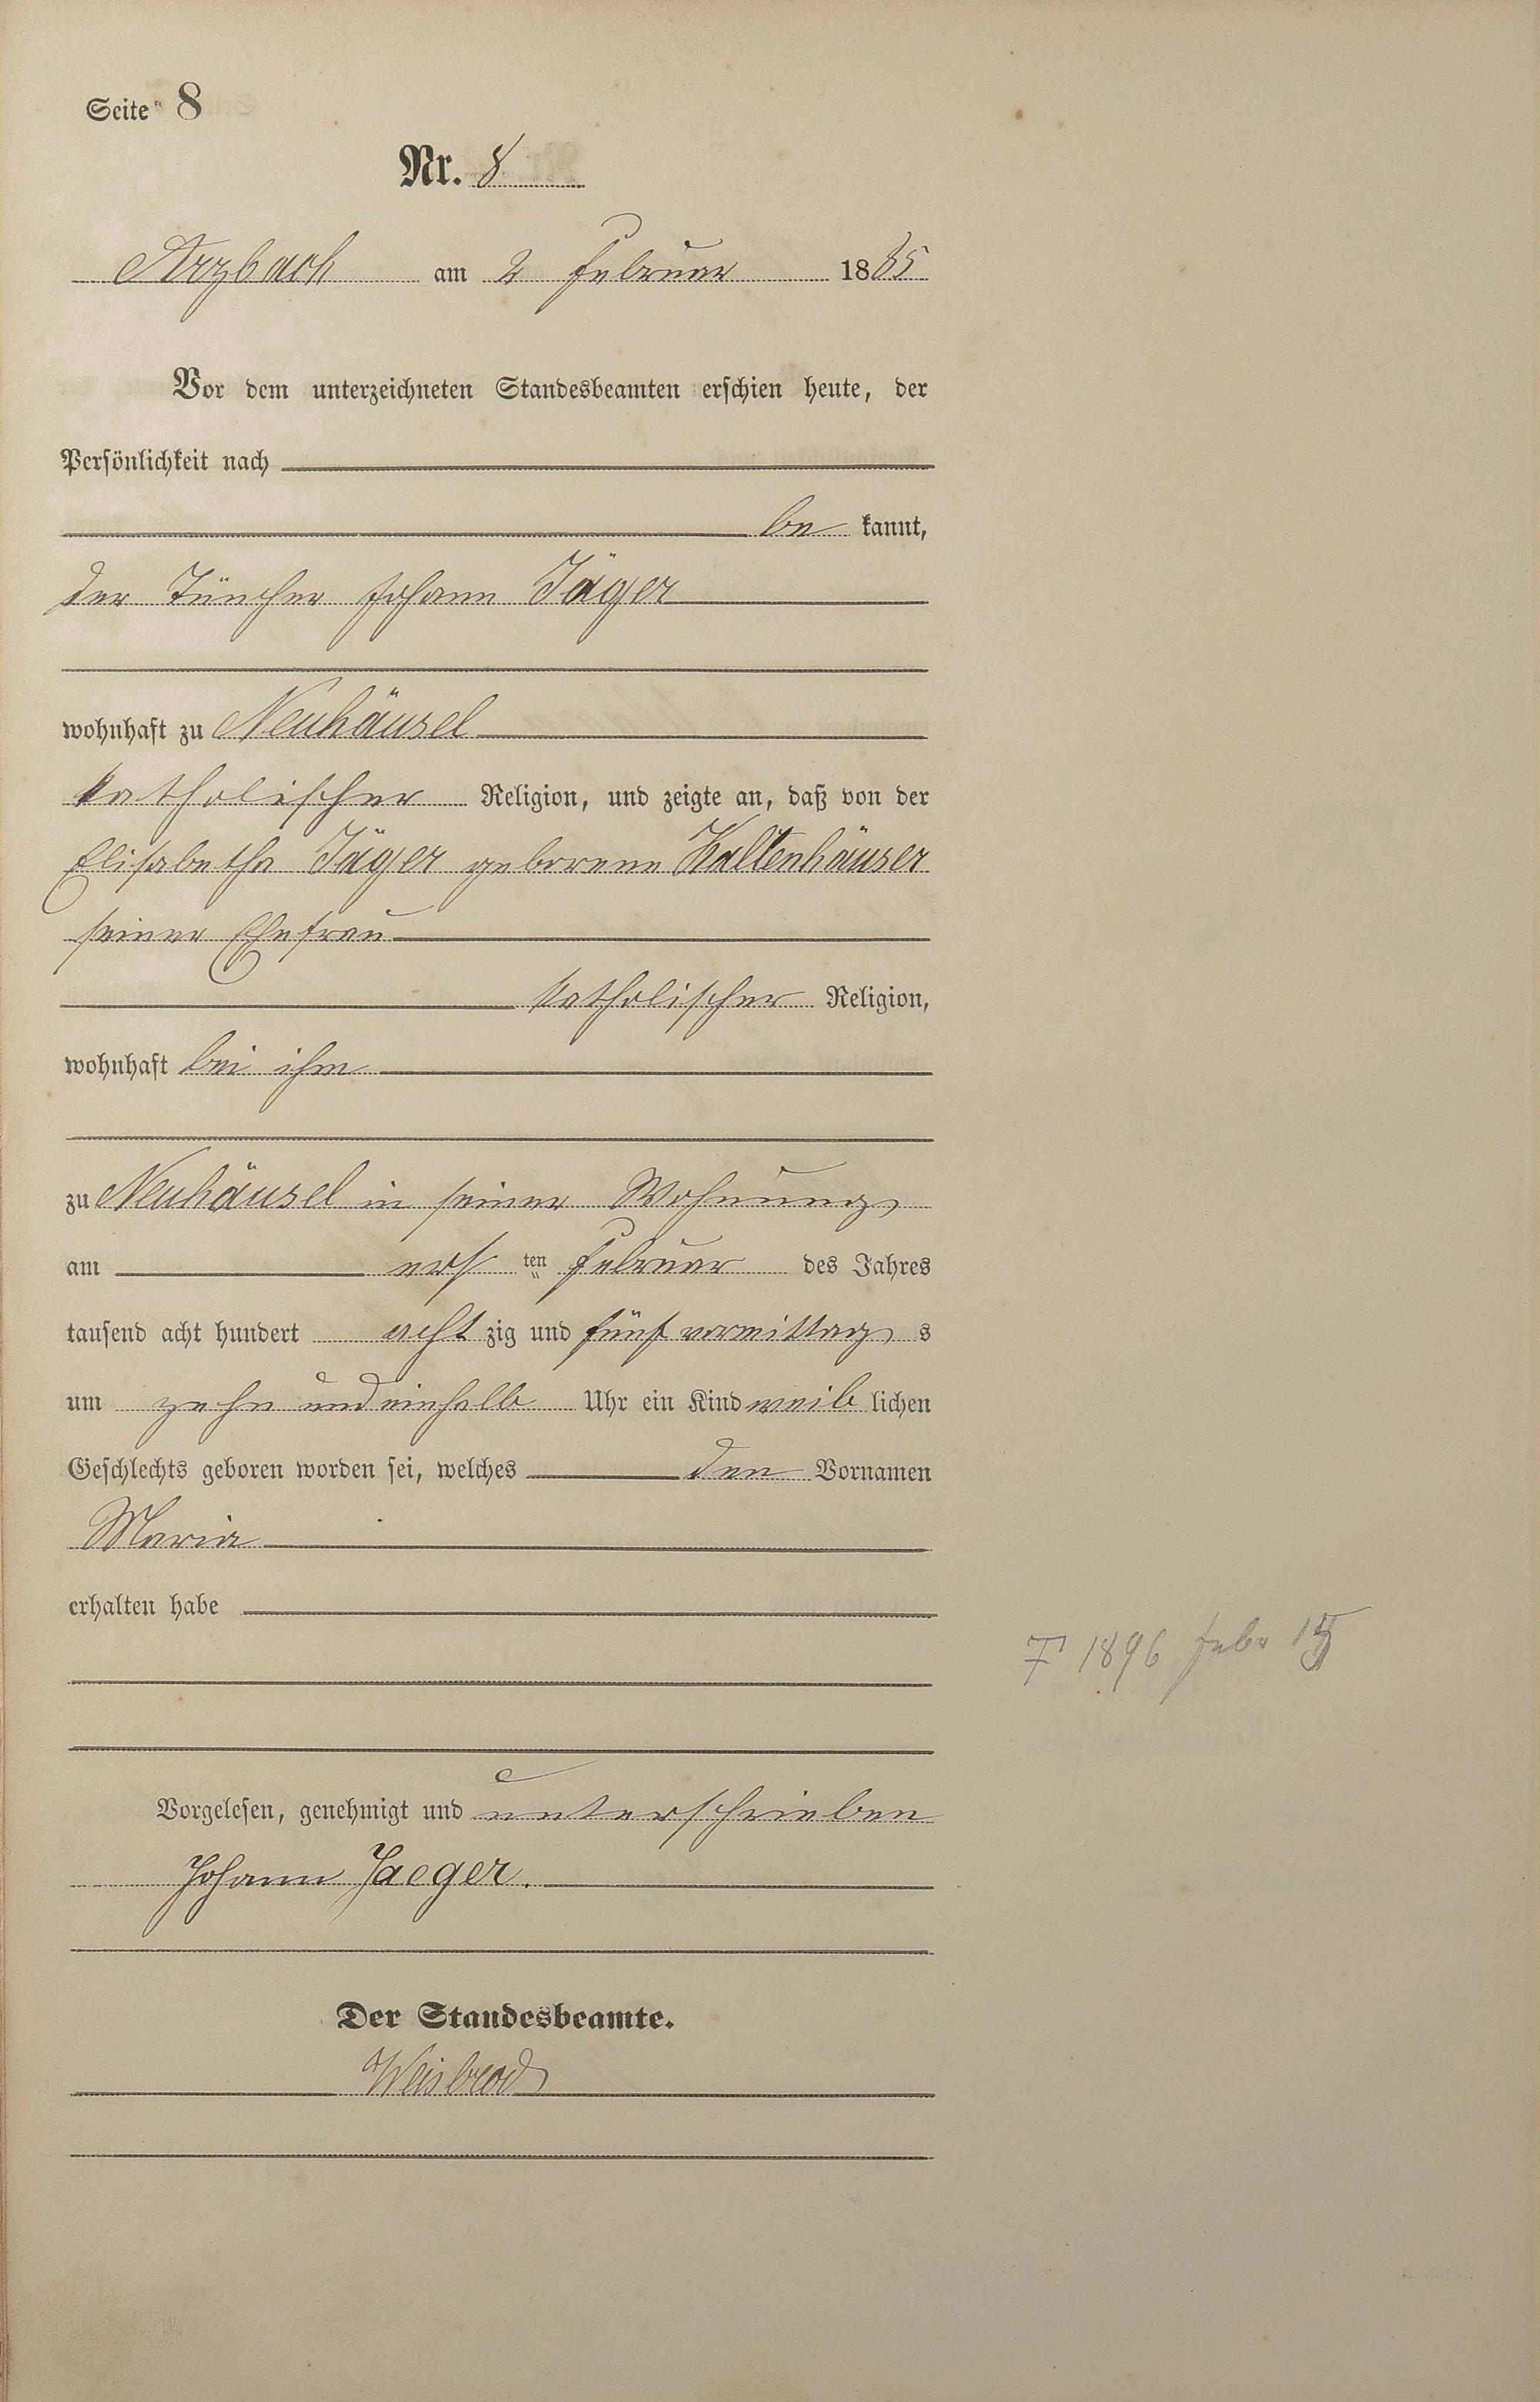 Seite 8
Nr. 8
Arzbach am 2 Februar 1885
Vor dem unterzeichneten Standesbeamten erschien heute, der
Persönlichkeit nach
be kannt,
der Tüncher Johann Jäger
wohnhaft zu Neuhäusel
katholischer Religion, und zeigte an, daß von der
Elisabetha Jäger geborene Kaltenhäuser
seiner Ehefrau
katholischer Religion,
wohnhaft bei ihm
zu Neuhäusel in seiner Wohnung
am ers ten Februar des Jahres
tausend acht hundert acht zig und fünf vormittag s
um zehn und einhalb Uhr ein Kind weib lichen
Geschlechts geboren worden sei, welches den Vornamen
Maria
erhalten habe
† 1896 Febr
Vorgelesen, genehmigt und unterschrieben
Johann Jaeger.
Der Standesbeamte.
Weisbrod